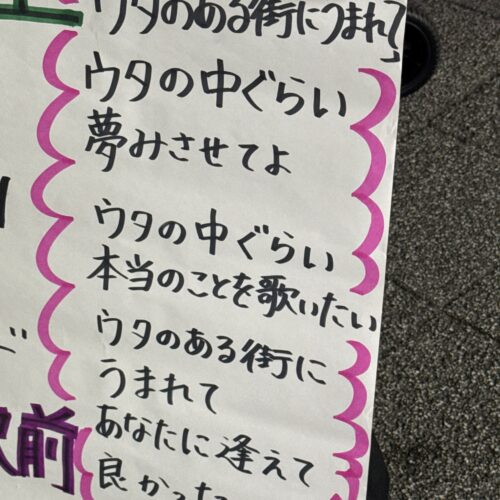 ウタのある街にうまれて
ウタの中ぐらい
夢みさせてよ
ウタの中ぐらい
本当のことを歌いたい
ウタのある街に
うまれて
あなたに逢えて
良かった
前